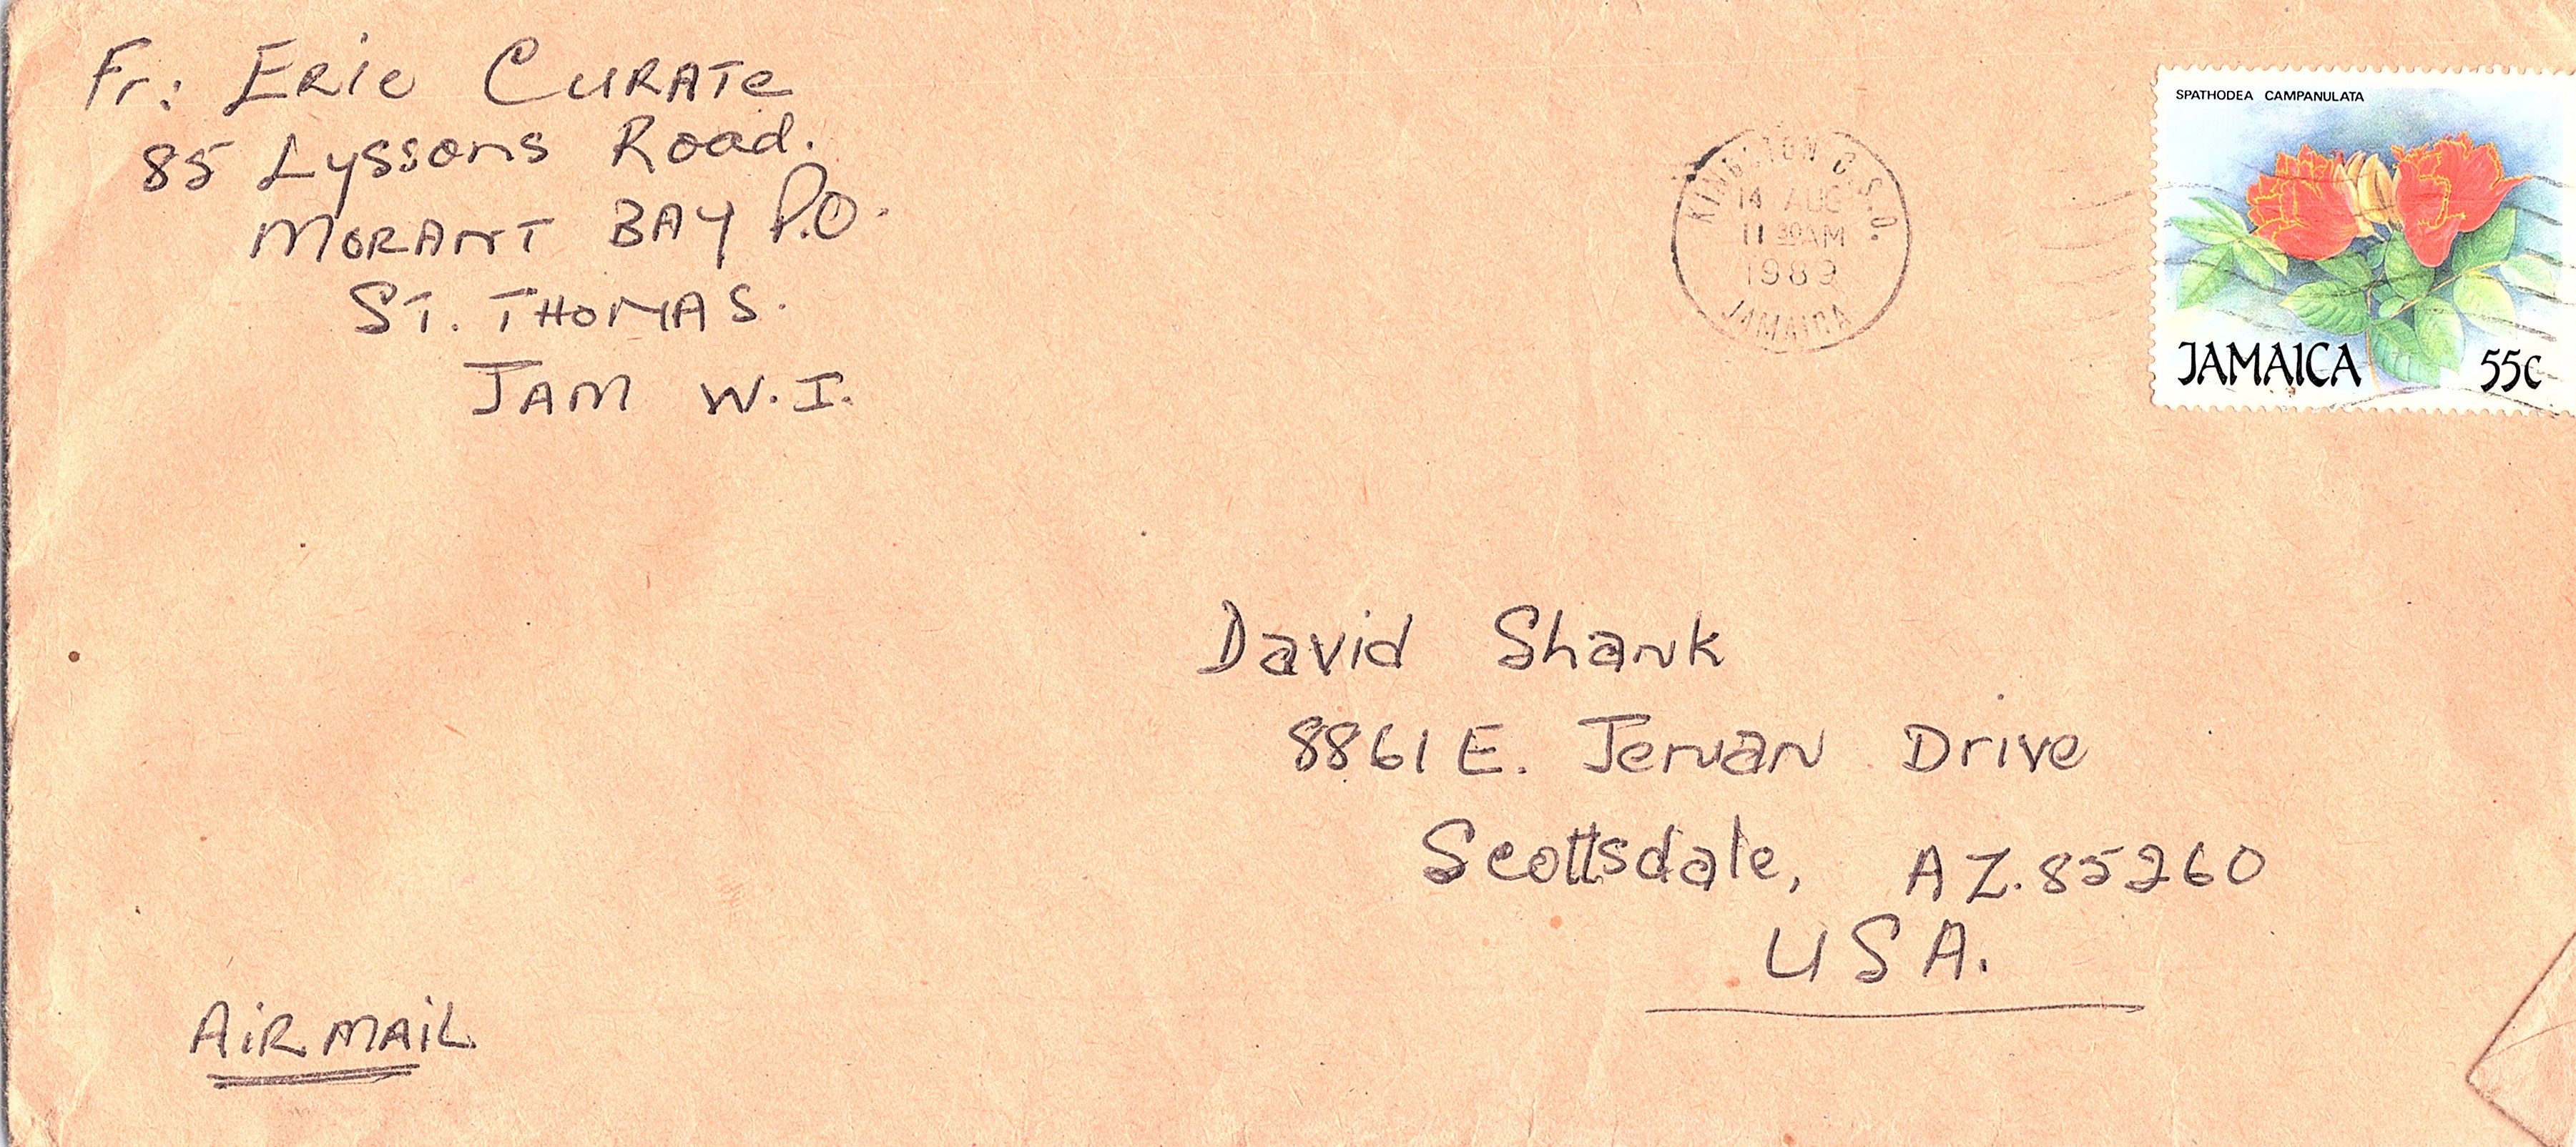 Fr: ERIC CURATE
85 Lyssons Road.
MORANT BAY P.O.
ST. THOMAS.
JAM W.I.
KINGSTON C.S.O.
14 AUG
11 30AM
1989
JAMAICA
SPATHODEA CAMPANULATA
JAMAICA 55c
David Shank
8861 E. Jenan Drive
Scottsdale, AZ. 85260
USA.
AIRMAIL